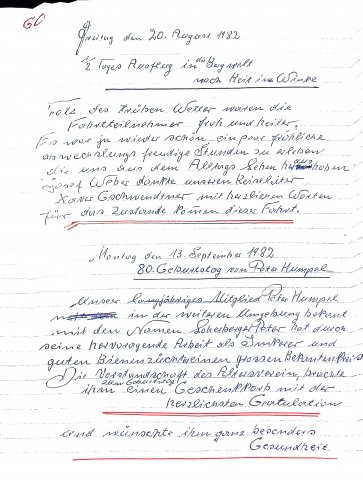 60
Freitag den 20. August 1982
½ Tages Ausflug in die Bergwelt
nach Heit im Winkl
Trotz des trüben Wetter waren die
Fahrtteilnehmer froh und heiter.
Es war ja wieder schön ein paar fröhliche
abwechslungs freudige Stunden zu erleben
die uns aus dem Alltags Leben heraushoben
Josef Weber dankte unseren Reiseleiter
Xaver Gschwendtner mit herzlichen Worten
für das zustande komen dieser Fahrt.
Montag den 13. September 1982
80. Geburtstag von Peter Humpel
Unser langjähriges Mitglied Peter Humpel
in der weiteren Umgebung bekant
mit den Namen Scherberger Peter hat durch
seine hervoragende Arbeit als Imkerer und
guten Bienenzüchter einen grossen Bekantenkreis
Die Vorstandschaft des Altersverein, brachte
zum Geburtstag
ihm einen Geschenkkorb mit der
herzlichsten Gratulation
und wünschte ihm ganz besonders
Gesundheit.